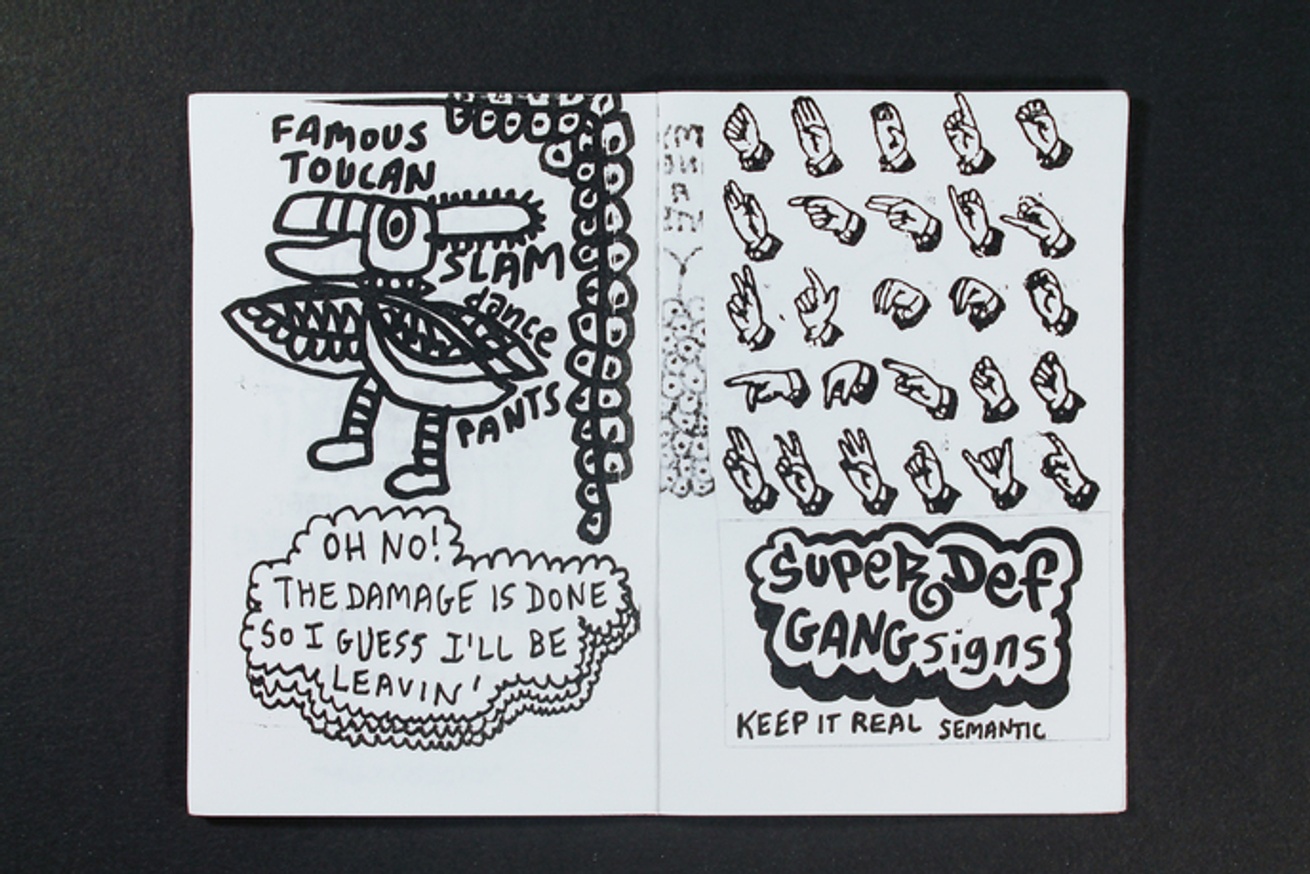 FAMOUS
TOUCAN
SLAM
dance
PANTS
OH NO!
THE DAMAGE IS DONE
SO I GUESS I'LL BE
LEAVIN'
SUPER Def
GANG signs
KEEP IT REAL SEMANTIC